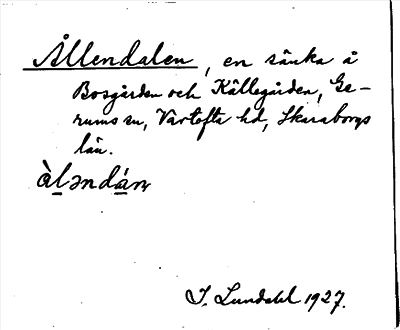 Ållendalen, en sänka å
Bosgården och Källegården, Ge-
rums sn, Vartofta hd, Skaraborgs
län.
àləndán
I. Lundahl 1927.